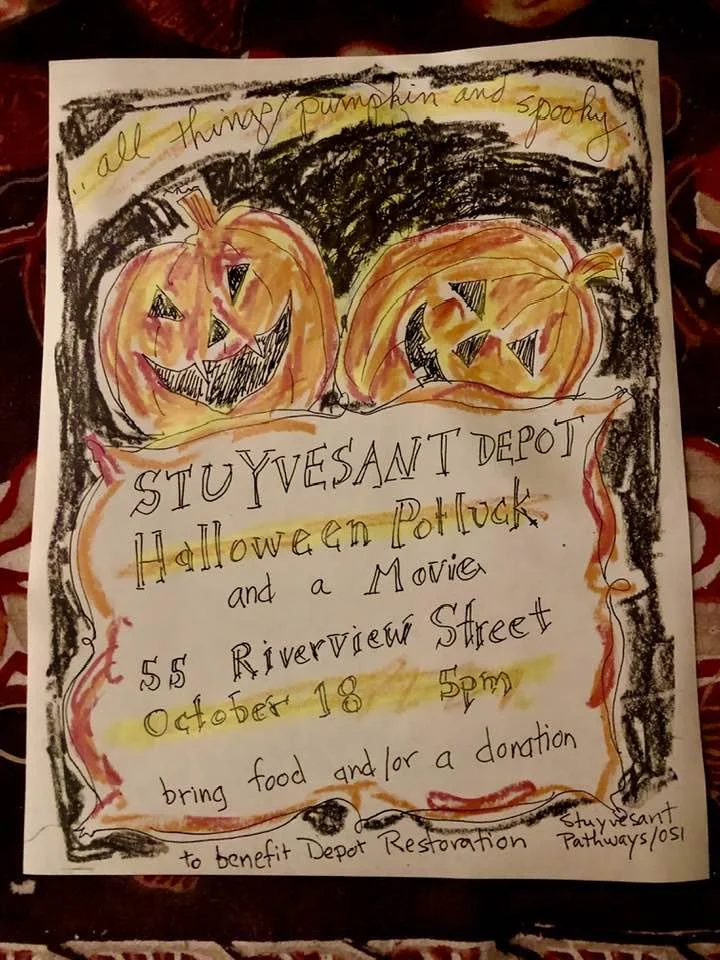 ..all things pumpkin and spooky..
STUYVESANT DEPOT
Halloween Potluck
and a Movie
55 Riverview Street
October 18 5pm
bring food and/or a donation
to benefit Depot Restoration
Stuyvesant
Pathways/OSI